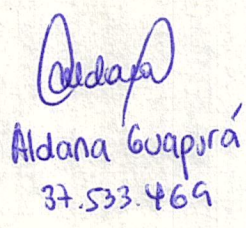 Aldana
Aldana Guapurá
37.533.469